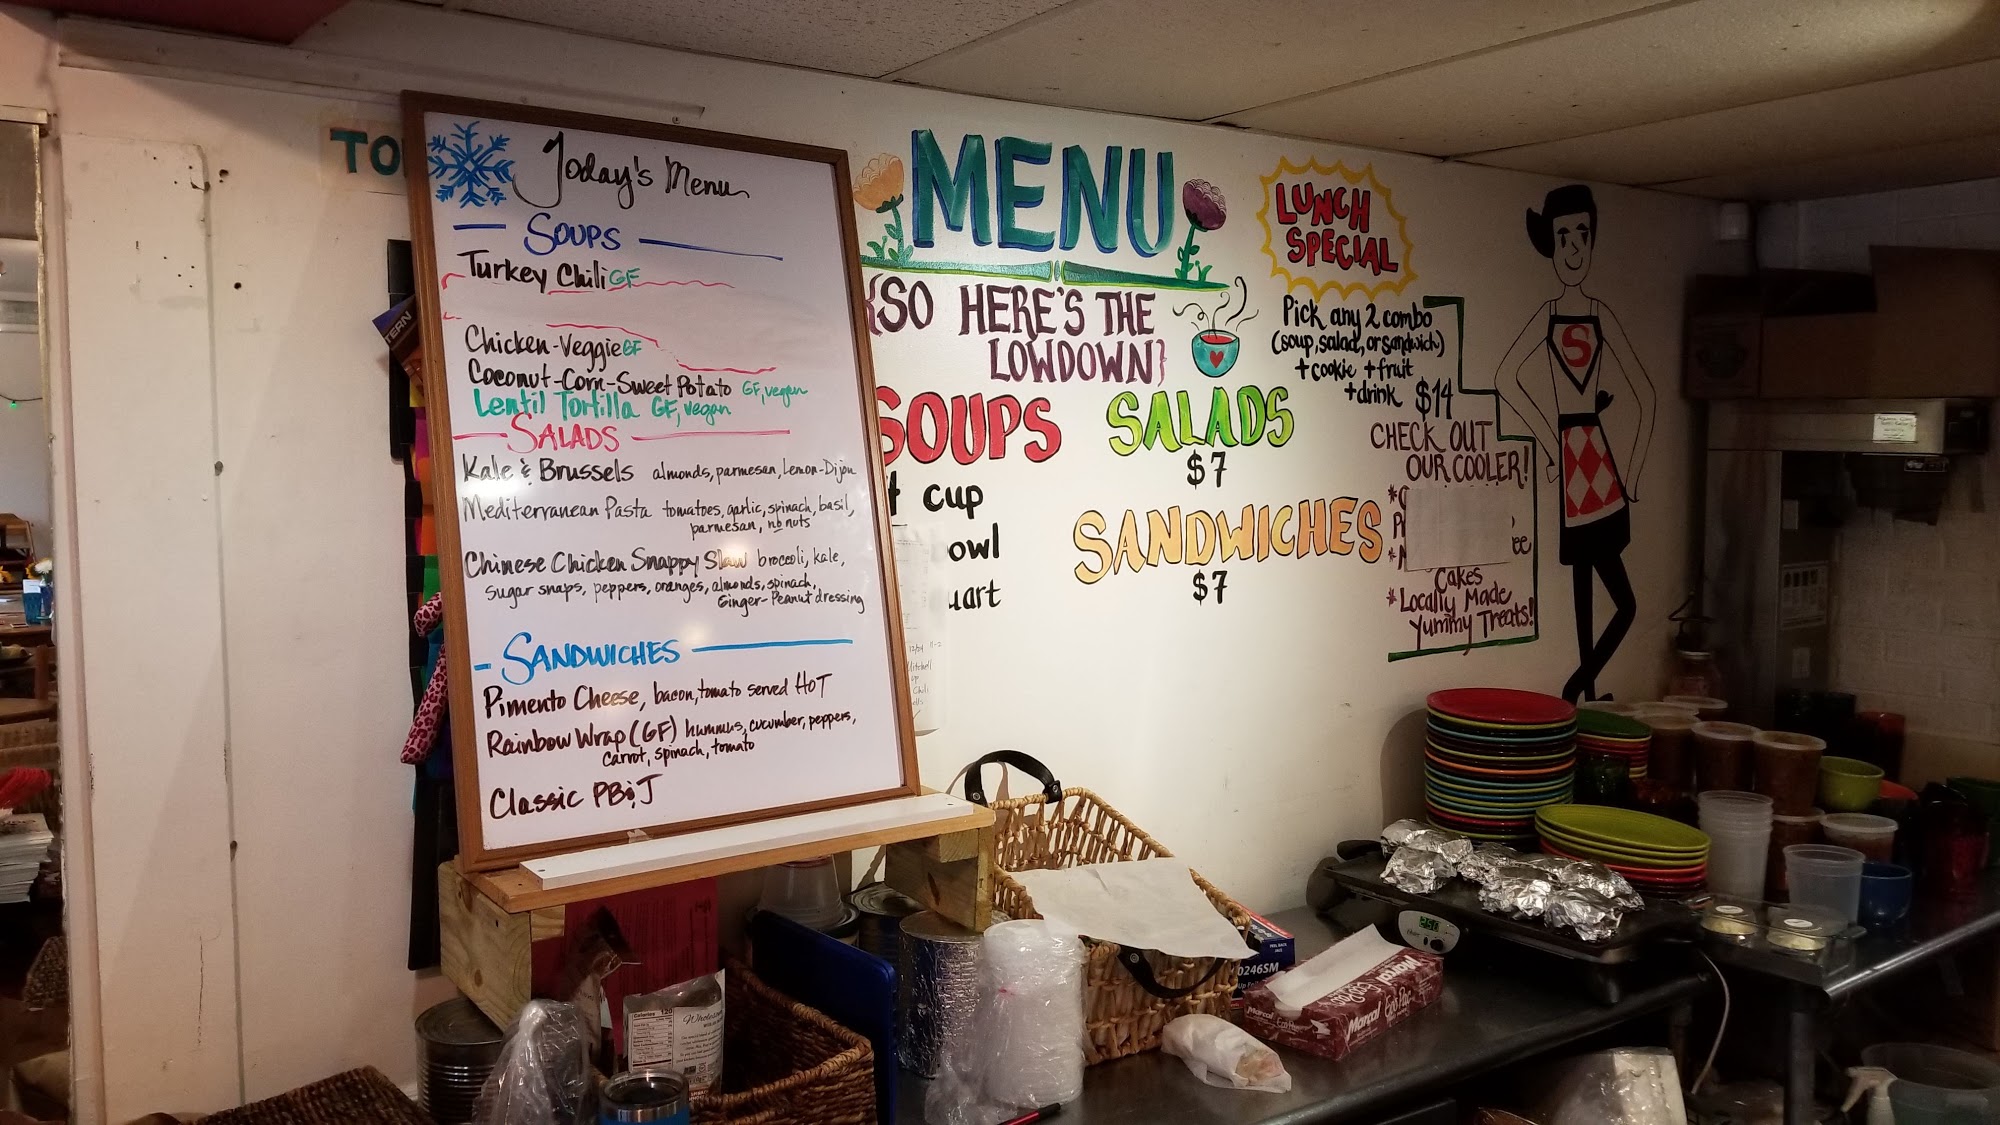 TO
Today's Menu
SOUPS
Turkey Chili GF
Chicken-Veggie GF
Coconut-Corn-Sweet Potato GF, vegan
Lentil Tortilla GF, vegan
SALADS
Kale & Brussels almonds, parmesan, Lemon-Dijon
Mediterranean Pasta tomatoes, garlic, spinach, basil,
parmesan, no nuts
Chinese Chicken Snappy Slaw broccoli, kale,
sugar snaps, peppers, oranges, almonds, spinach,
Ginger-Peanut dressing
SANDWICHES
Pimento Cheese, bacon, tomato served HOT
Rainbow Wrap (GF) hummus, cucumber, peppers,
carrot, spinach, tomato
Classic PB&J
MENU
{SO HERE'S THE
LOWDOWN}
SOUPS
cup
owl
uart
SALADS
$7
SANDWICHES
$7
LUNCH
SPECIAL
Pick any 2 combo
(soup, salad, or sandwich)
+ cookie + fruit
+ drink $14
CHECK OUT
OUR COOLER!
Cakes
* Locally Made
Yummy Treats!
S
12/24
Chili
TERN
0246SM
Marcal Eco Pac
Marcal Eco Pac
Calories 120
250